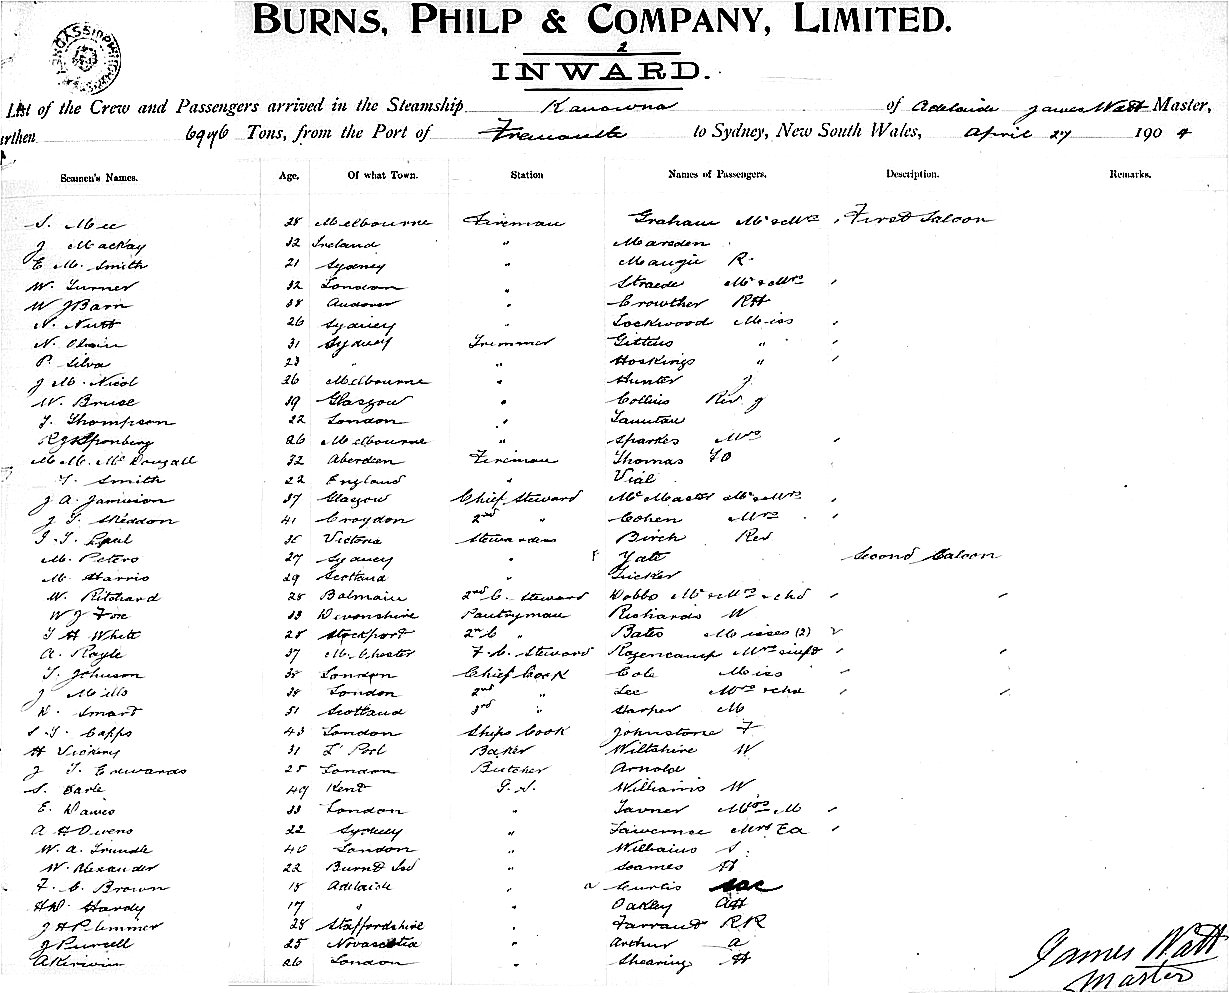 BURNS, PHILP & COMPANY, LIMITED.
2
INWARD.
List of the Crew and Passengers arrived in the Steamship Kanowna of Adelaide James Watt Master,
Burthen 6996 Tons, from the Port of Fremantle to Sydney, New South Wales, April 27 1904
Seamen's Names. Age. Of what Town. Station Names of Passengers. Description. Remarks.
S. Mee 28 Melbourne Fireman Graham Mr & Mrs First Saloon
J Mackay 32 Ireland " Marsden
E M. Smith 21 Sydney " Maugie R.
W. Turner 32 London " Straede Mr & Mrs
W J Barn 38 Andover " Crowther RH
N. Nutt 26 Sydney " Lockwood Miss
N. 31 Sydney Trimmer Gittus "
P. Silva 23 " " Hoskings "
J M. Nicol 26 Melbourne " Hunter J
W. Bruse 39 Glasgow " Collins Rev J
T. Thompson 22 London "
26 Melbourne " Sparkes Mrs
M. M. McDougall 32 Aberdeen Fireman Thomas
T. Smith 22 England " Vial
J A. Jamieson 37 Glasgow Chief Steward McMaster Mr & Mrs
J T. Skeddon 41 Croydon 2nd " Cohen Mrs
Paul 36 Victoria Stewardess Birch Rev
M. Peters 27 Sydney " Yate Second Saloon
M. Harris 29 Scotland Tucker
W. Ritchard 28 Balmain 2nd C. Steward Webbo Mr & Mrs & chd
W J Fox 33 Devonshire Pantryman Richards W
T H White 28 Stockport 2nd C " Bates Misses (2)
A. Royle 37 M. Chester F. C. Steward Rozencamp Mrs & inft
T. Johnson 38 London Chief Cook Cole Miss
J Mills 38 London 2nd " Lee Mrs & chd
D. Smart 51 Scotland 3rd " Harper M
S T. Capps 43 London Ships Cook Johnstone F
H Vickery 31 Baker Wiltshire W
J T. Edwards 25 London Butcher Arnold
S. Earle 49 Kent G. S. Williams W
E. Dawes 33 London " Tavner Mrs M
A H Owens 22 Sydney " Lawrence Mrs Ea
W. A. Trundle 40 London " Williams S.
W. Alexander 22 " Soames H
F. C. Brown 18 Adelaide " Curtis
HW Hardy 17 " " Oakley AH
J H Plimmer 28 Staffordshire " Farrand RR
J Purcell 25 Novascotia " Arthur A
26 London " Shearing H
James Watt
Master